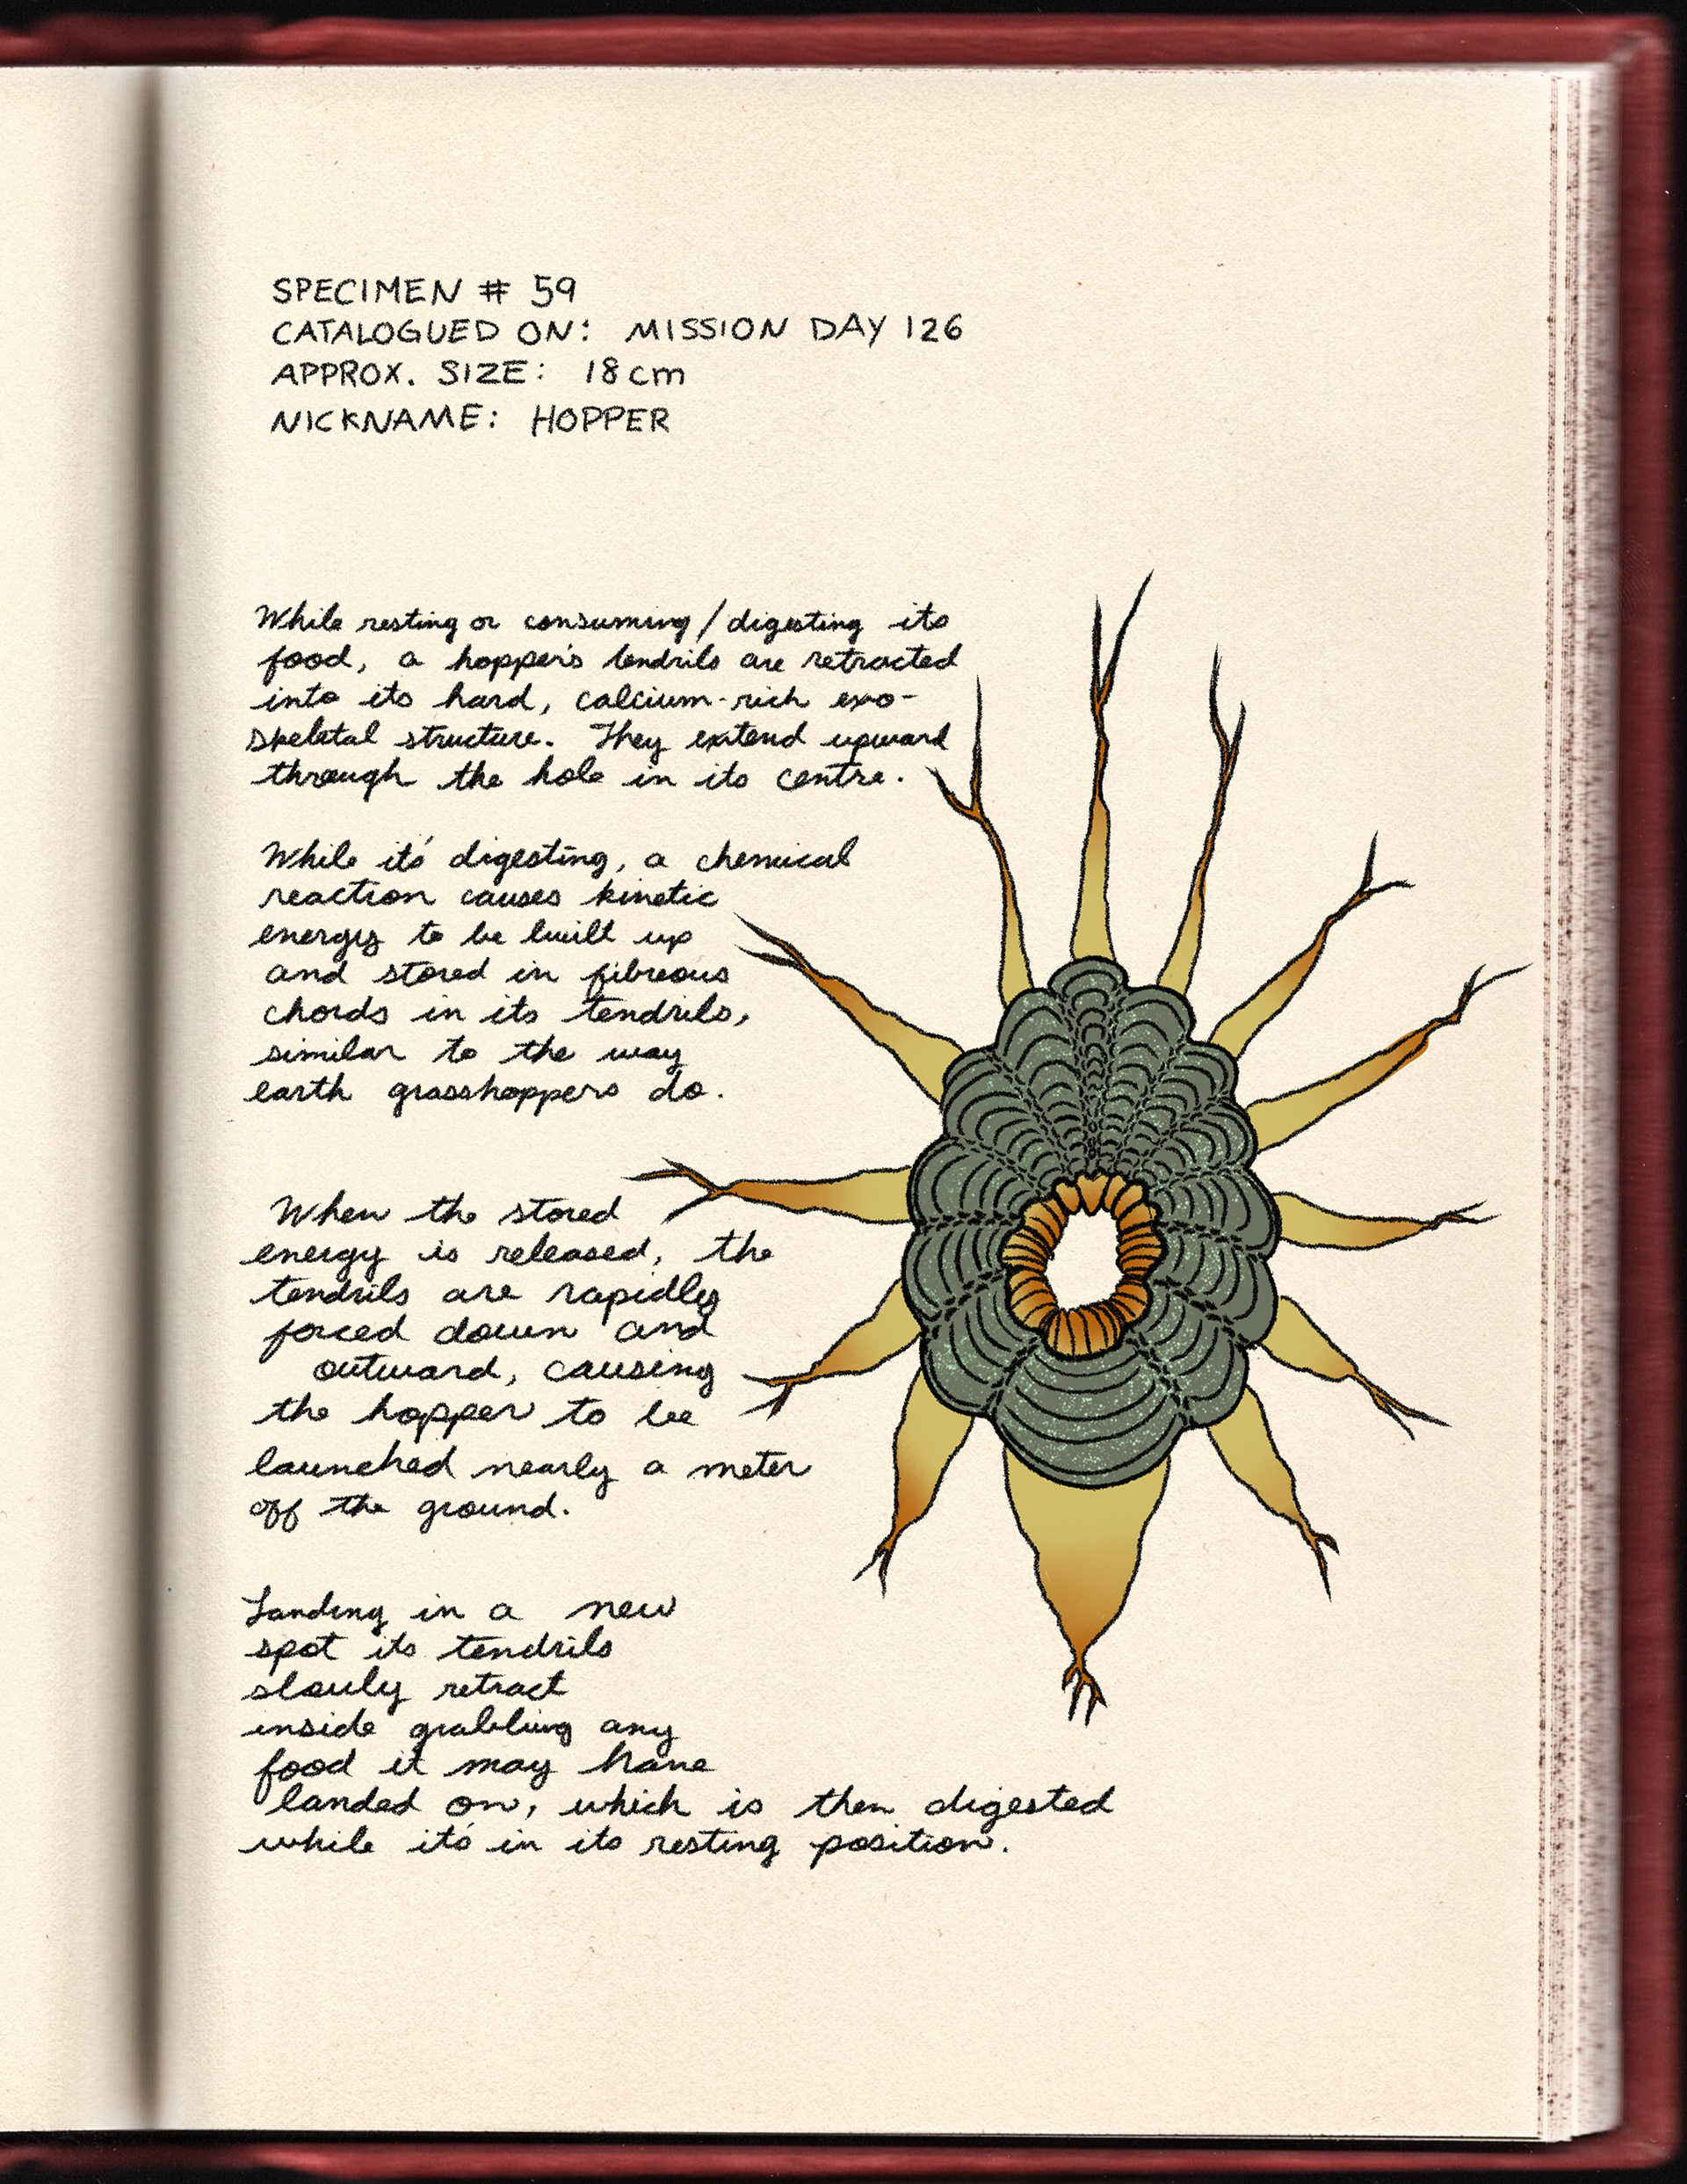 SPECIMEN # 59
CATALOGUED ON: MISSION DAY 126
APPROX. SIZE: 18cm
NICKNAME: HOPPER
While resting or consuming/digesting its
food, a hopper's tendrils are retracted
into its hard, calcium-rich exo-
skeletal structure. They extend upward
through the hole in its centre.
While it's digesting, a chemical
reaction causes kinetic
energy to be built up
and stored in fibreous
chords in its tendrils,
similar to the way
earth grasshoppers do.
When the stored
energy is released, the
tendrils are rapidly
forced down and
outward, causing
the hopper to be
launched nearly a meter
off the ground.
Landing in a new
spot its tendrils
slowly retract
inside grabbing any
food it may have
landed on, which is then digested
while it's in its resting position.